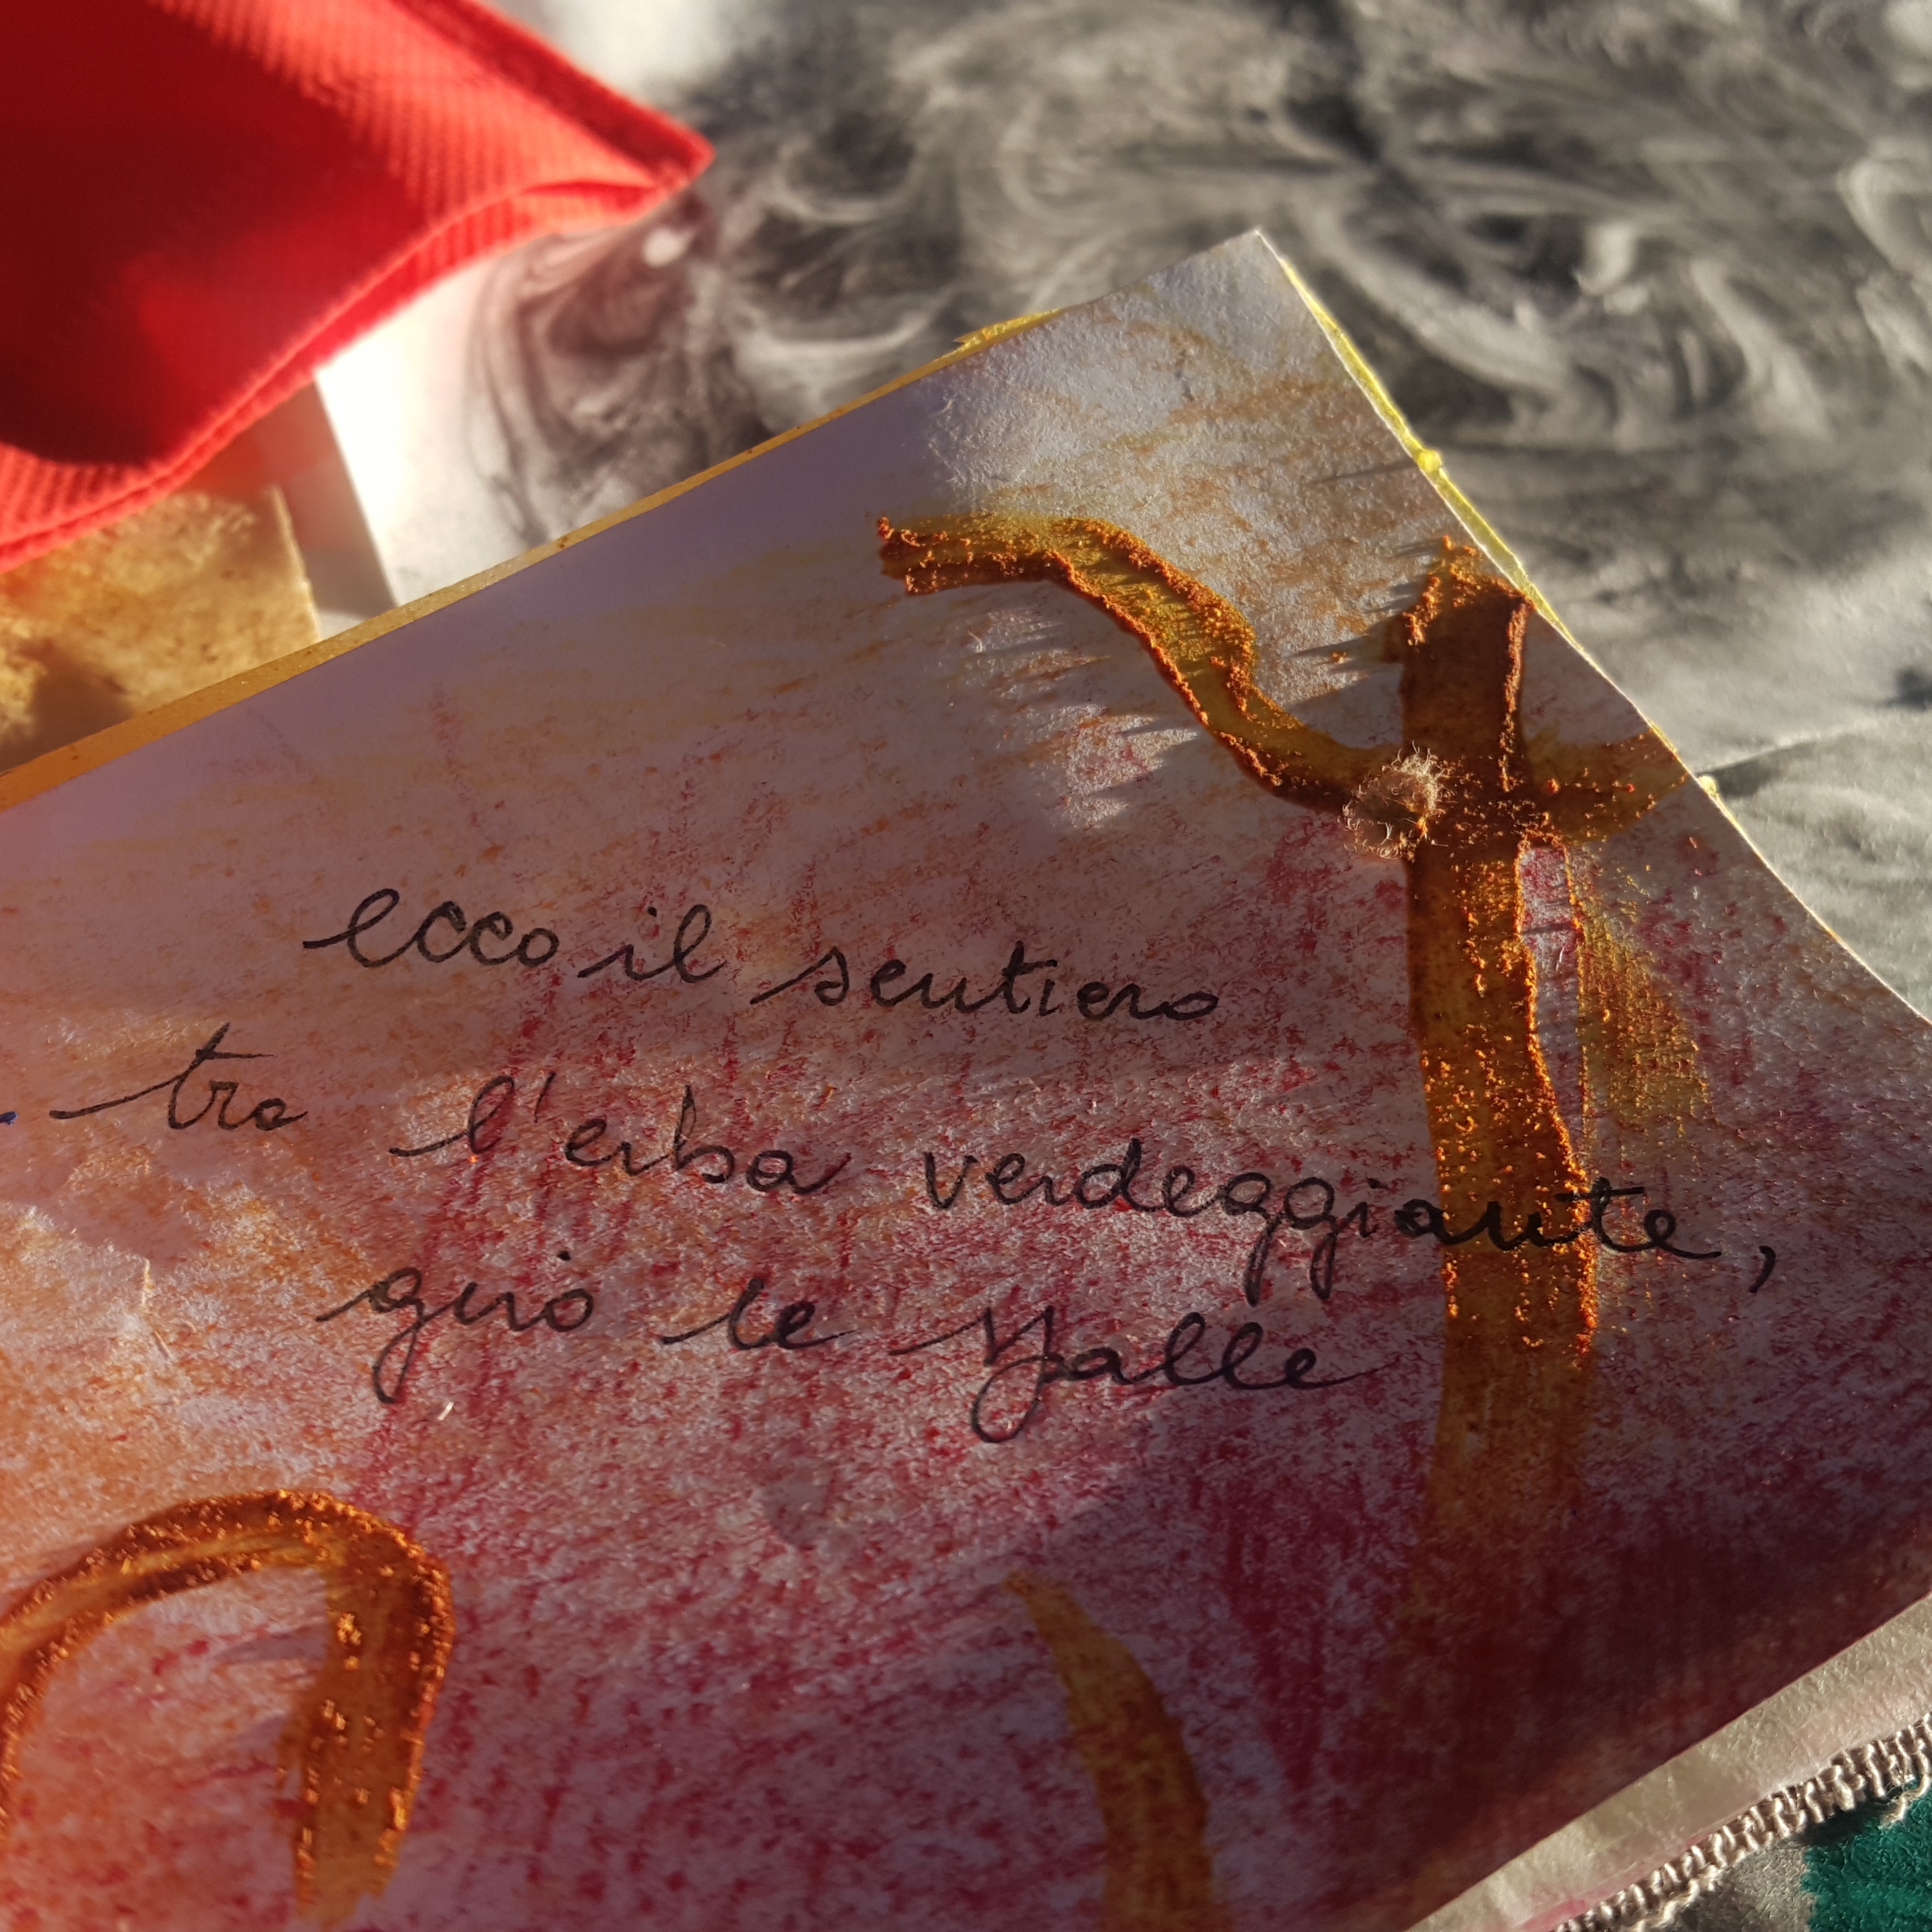 ecco il sentiero
tra l'erba verdeggiante,
girò le spalle